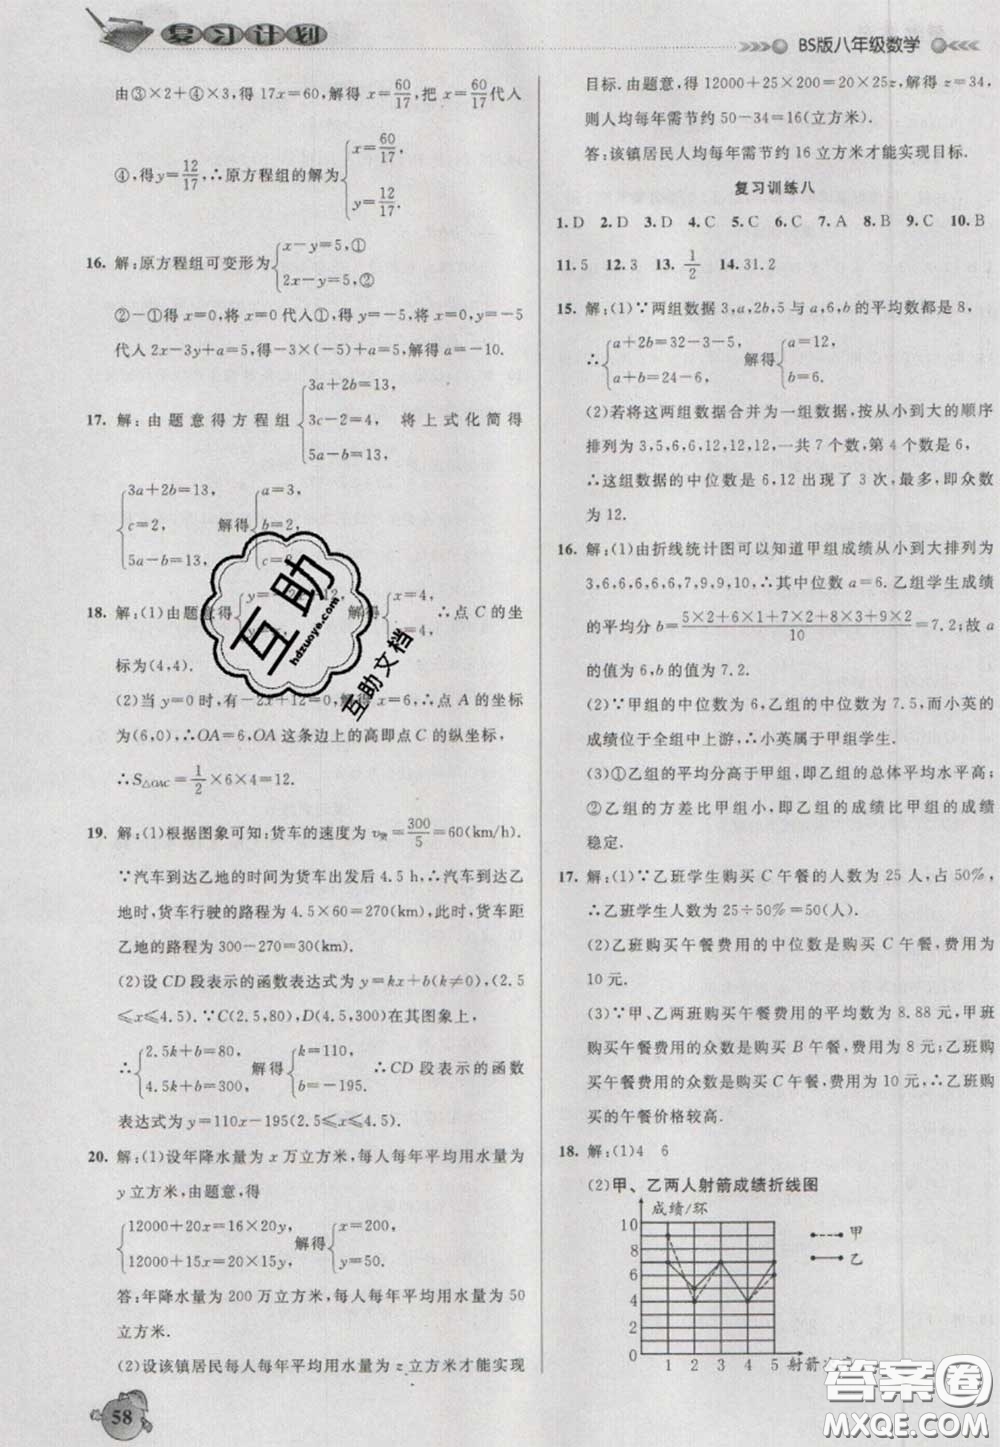 复习计划
BS版八年级数学
由③×2+④×3,得17x=60,解得x=60/17,把x=60/17代入
④,得y=12/17,∴原方程组的解为{x=60/17, y=12/17.
16. 解:原方程组可变形为{x-y=5,① 2x-y=5,②
②-①得x=0,将x=0代入①,得y=-5,将x=0,y=-5
代入2x-3y+a=5,得-3×(-5)+a=5,解得a=-10.
17. 解:由题意得方程组{3a+2b=13, 3c-2=4, 5a-b=13, 将上式化简得
{3a+2b=13, c=2, 5a-b=13, 解得{a=3, b=2,
18. 解:(1)由题意得 解得{x=4, =4, ∴点C的坐
标为(4,4).
(2)当y=0时,有-2x+12=0,解得x=6.∴点A的坐标
为(6,0),∴OA=6,OA这条边上的高即点C的纵坐标,
∴S△OAC=1/2×6×4=12.
19. 解:(1)根据图象可知:货车的速度为v货=300/5=60(km/h).
∵汽车到达乙地的时间为货车出发后4.5 h,∴汽车到达乙
地时,货车行驶的路程为4.5×60=270(km),此时,货车距
乙地的路程为300-270=30(km).
(2)设CD段表示的函数表达式为y=kx+b(k≠0),(2.5
≤x≤4.5).∵C(2.5,80),D(4.5,300)在其图象上,
∴{2.5k+b=80, 4.5k+b=300, 解得{k=110, b=-195. ∴CD段表示的函数
表达式为y=110x-195(2.5≤x≤4.5).
20. 解:(1)设年降水量为x万立方米,每人每年平均用水量为
y立方米,由题意,得
{12000+20x=16×20y, 12000+15x=20×15y, 解得{x=200, y=50.
答:年降水量为200万立方米,每人每年平均用水量为50
立方米.
(2)设该镇居民每人每年平均用水量为z立方米才能实现
58
目标.由题意,得12000+25×200=20×25z,解得z=34,
则人均每年需节约50-34=16(立方米).
答:该镇居民人均每年需节约16立方米才能实现目标.
复习训练八
1.D 2.D 3.D 4.C 5.C 6.C 7.A 8.B 9.C 10.B
11.5 12.3 13.1/2 14.31.2
15. 解:(1)∵两组数据3,a,2b,5与a,6,b的平均数都是8,
∴{a+2b=32-3-5, a+b=24-6, 解得{a=12, b=6.
(2)若将这两组数据合并为一组数据,按从小到大的顺序
排列为3,5,6,6,12,12,12,一共7个数,第4个数是6,
∴这组数据的中位数是6,12出现了3次,最多,即众数
为12.
16. 解:(1)由折线统计图可以知道甲组成绩从小到大排列为
3,6,6,6,6,6,7,9,9,10,∴其中位数a=6.乙组学生成绩
的平均分b=5×2+6×1+7×2+8×3+9×2/10=7.2;故a
的值为6,b的值为7.2.
(2)∵甲组的中位数为6,乙组的中位数为7.5,而小英的
成绩位于全组中上游,∴小英属于甲组学生.
(3)①乙组的平均分高于甲组,即乙组的总体平均水平高;
②乙组的方差比甲组小,即乙组的成绩比甲组的成绩
稳定.
17. 解:(1)∵乙班学生购买C午餐的人数为25人,占50%,
∴乙班学生人数为25÷50%=50(人).
(2)乙班购买午餐费用的中位数是购买C午餐,费用为
10元.
(3)∵甲、乙两班购买午餐费用的平均数为8.88元,甲班
购买午餐费用的众数是购买B午餐,费用为8元;乙班购
买午餐费用的众数是购买C午餐,费用为10元,∴乙班购
买的午餐价格较高.
18. 解:(1)4 6
(2)甲、乙两人射箭成绩折线图
成绩/环
10
8
6
4
2
0
1 2 3 4 5 射箭次序
甲
乙
互助
hdzuoye.com
互助文档
答案圈
MXQE.COM